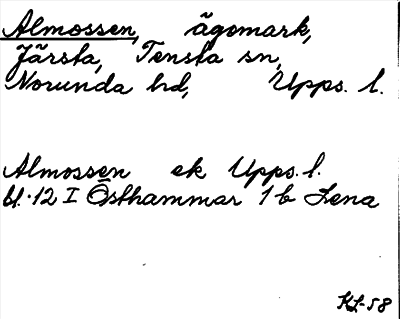 Almossen, ägomark,
Järsta, Tensta sn,
Norunda hd, Upps. l.
Almossen ek Upps. l.
bl. 12 I Östhammar 1 b Lena
KL-58